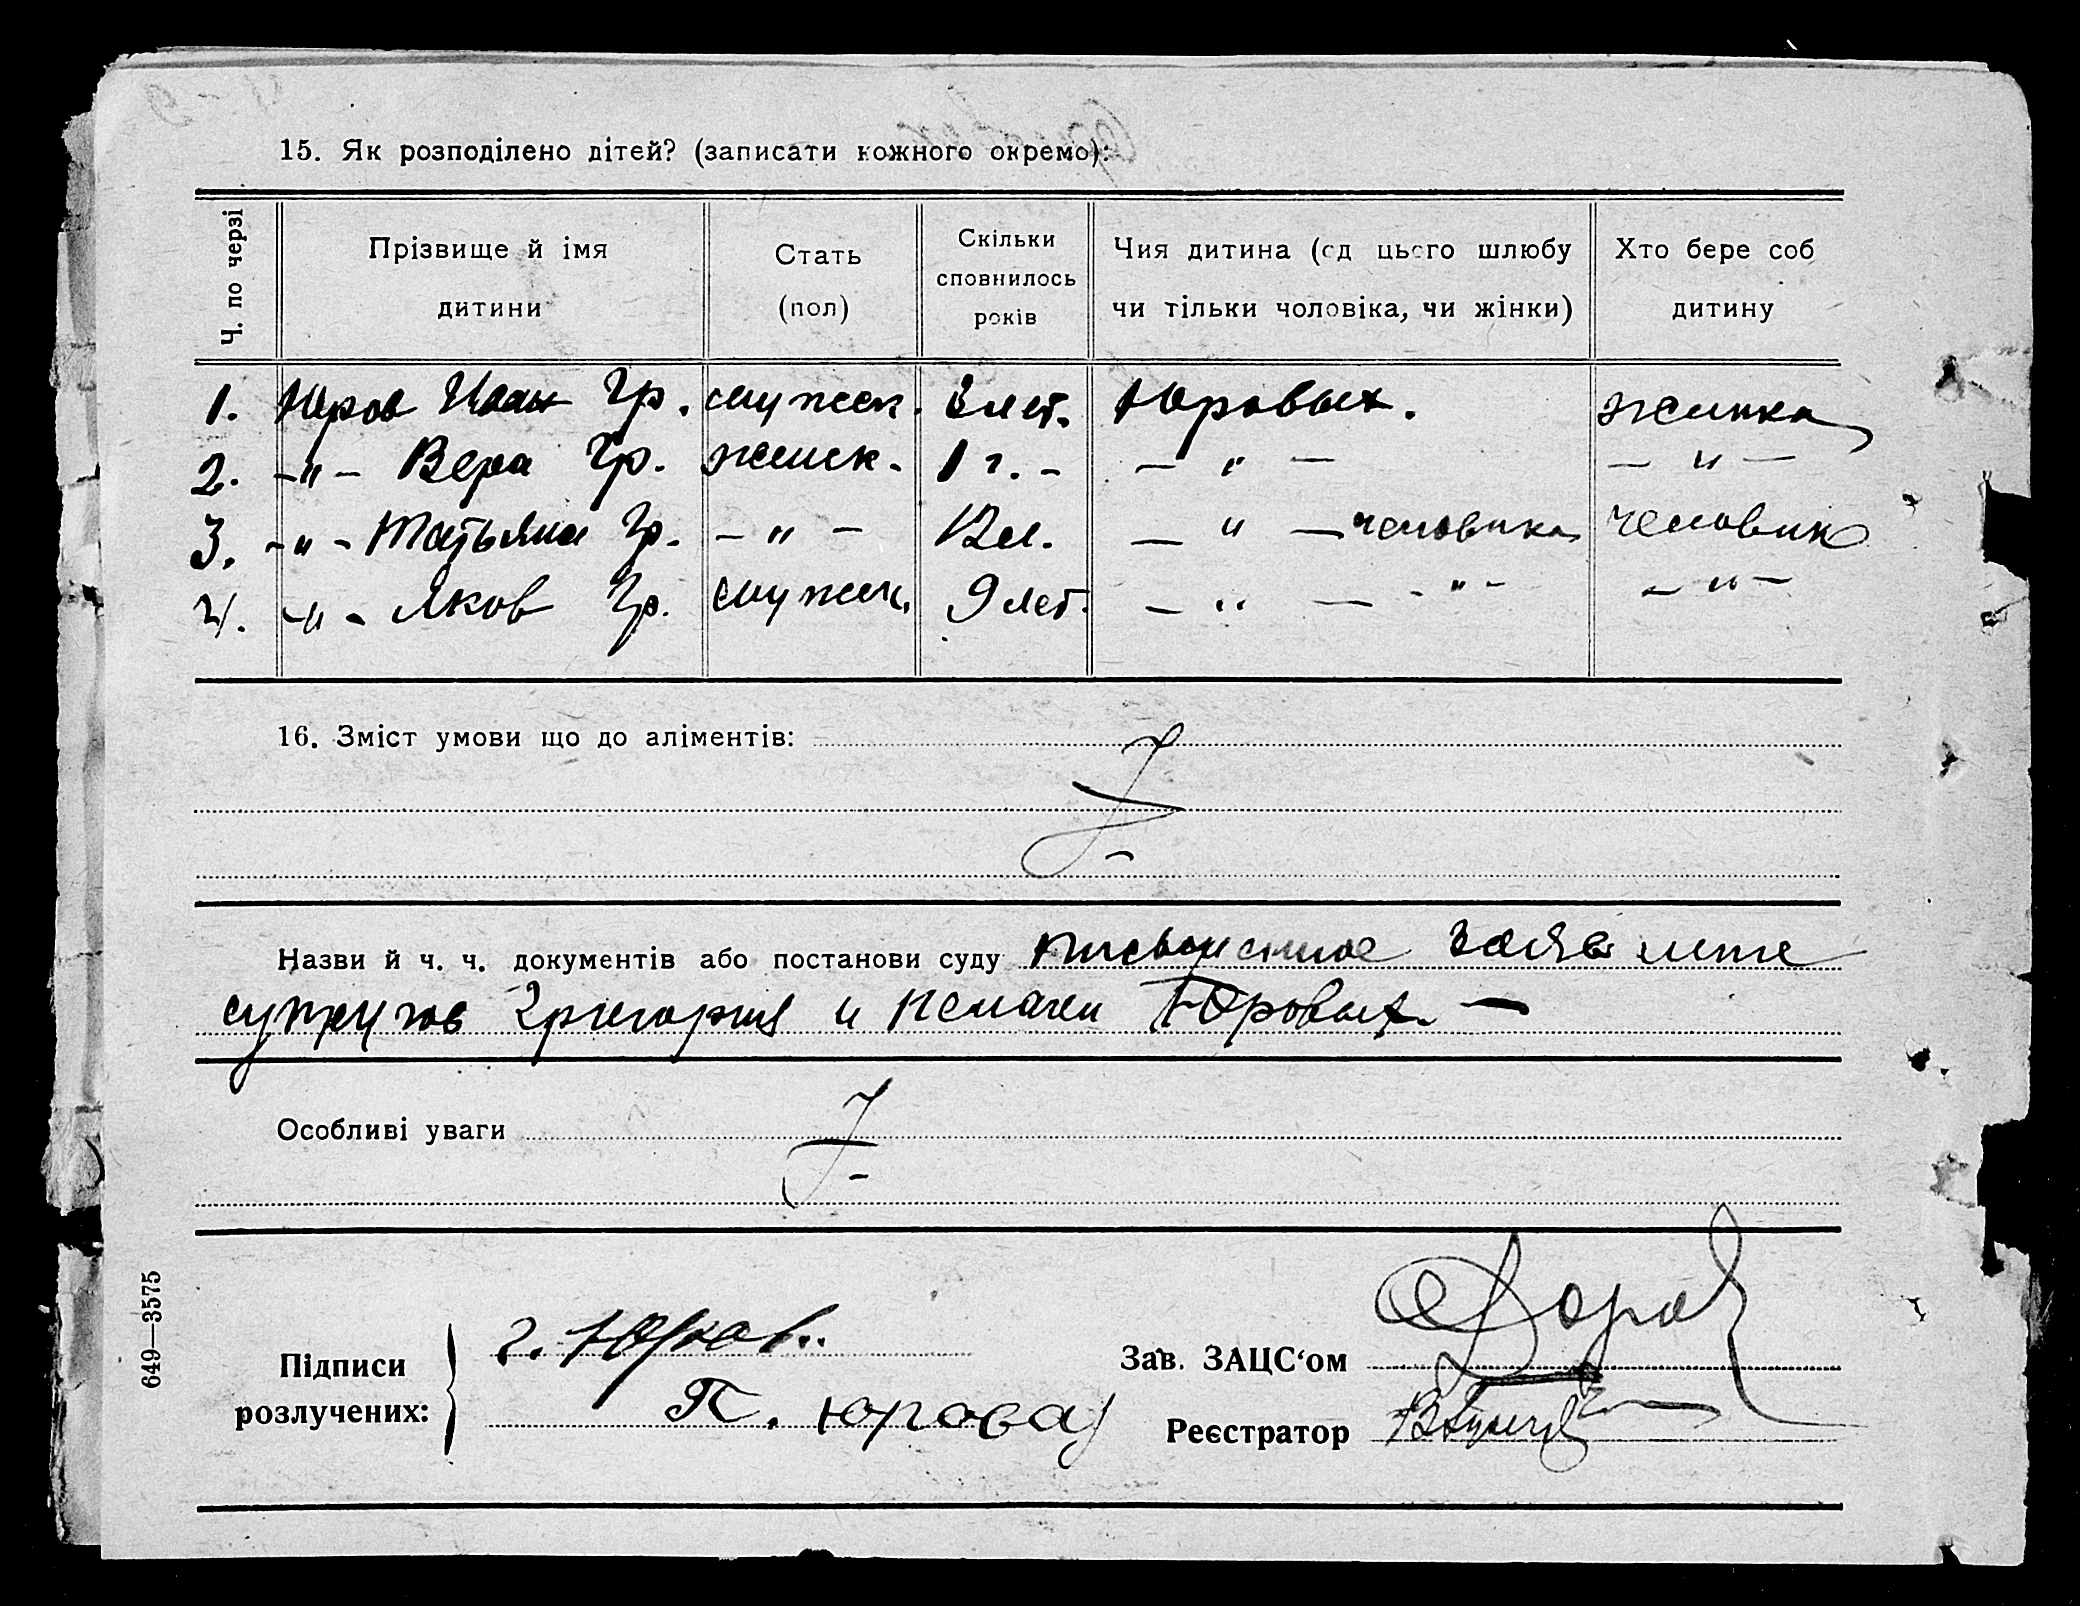 15. Як розподілено дітей? (записати кожного окремо):
Ч. по черзі
Прізвище й імя
дитини
Стать
(пол)
Скільки
сповнилось
років
Чия дитина (од цього шлюбу
чи тільки чоловіка, чи жінки)
Хто бере соб
дитину
1. Юров Иван Гр. мужск. 3 лет. Юровых. жинка
2. -"- Вера Гр. женск. 1 г. - - " - - " -
3. -"- Татьяна Гр. - " - 12 л. - " - человика человик
4. -"- Яков Гр. мужск. 9 лет. - " - - " - - " -
16. Зміст умови що до аліментів:
Назви й ч. ч. документів або постанови суду письменное заявление
супругов Григория и Юровых. —
Особливі уваги
649—3575
Підписи
розлучених:
Г. Юров.
П. Юрова
Зав. ЗАЦС‘ом
Реєстратор